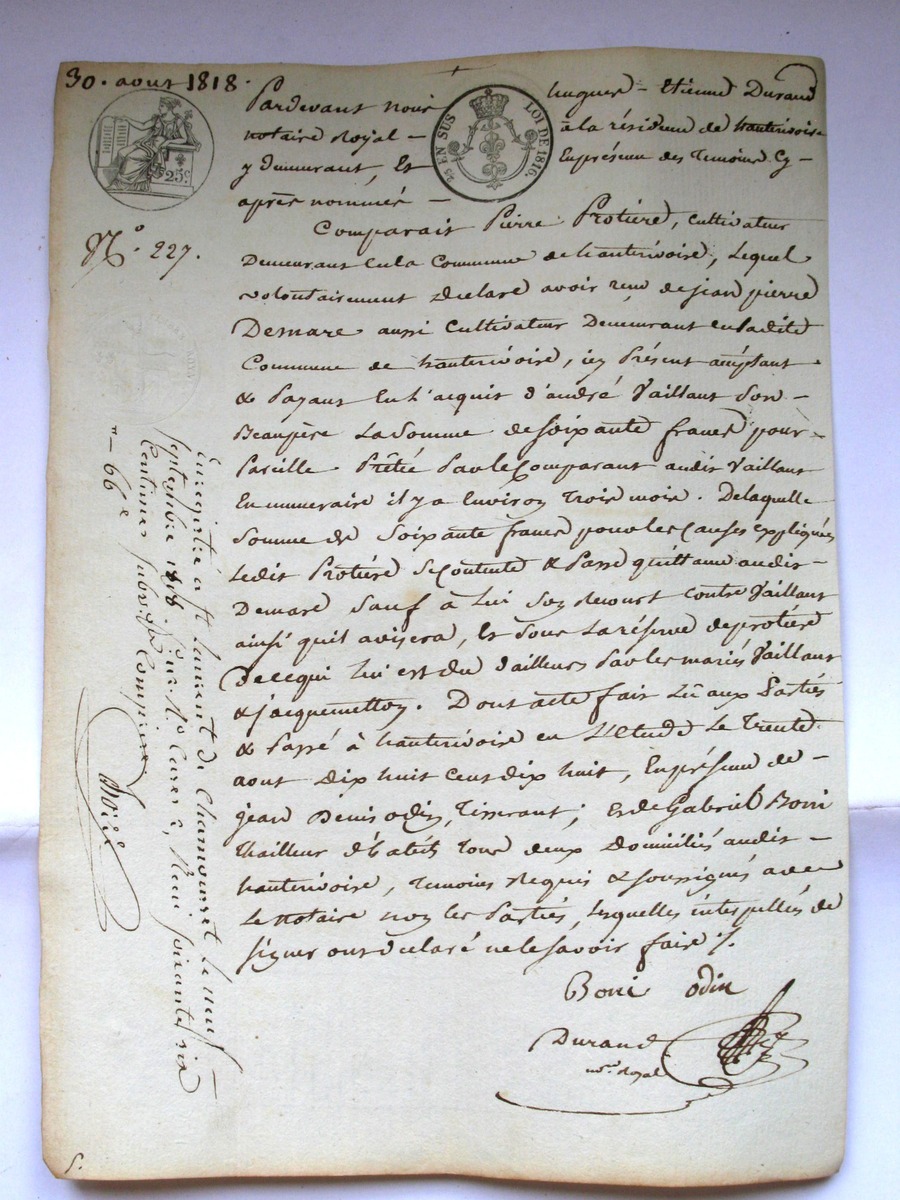 30. aout 1818.
25 EN SUS
LOI DE 1816.
25c
Pardevant nous hugues - Etienne Durand
notaire Royal - à la résidence de hauterivoire
y demeurant, Et En présence des Temoins Cy -
après nommés -
N.º 227.
Comparait Pierre Protière, cultivateur
Demeurant En la Commune de hauterivoire, Lequel
volontairement declare avoir reçu de jean pierre
Demare aussi Cultivateur Demeurant en Ladite
Commune de hauterivoire, icy Présent acceptant
& Payant En L'acquit d'andré Vaillant Son -
Beaupère La Somme de Soixante francs pour -
Pareille Prêtée Par le Comparant audit Vaillant
En numeraire il y a Environ Trois mois. De laquelle
Somme de Soixante francs pour les Causes expliquées
Ledit Protière Se Contente & Passe quittance audit -
Demare Sauf à Lui Son recourt contre Vaillant
ainsi quil avisera, Et Sous La réserve de protière
De ce qui Lui est du d'ailleurs Par les mariés Vaillant
& jacquemetton. Dont acte fait Lû aux Parties
& Passé à hauterivoire en L'Etude Le Trente
aout Dix huit Cent dix huit, En présence de -
jean Denis odin, Tisserant; Et de Gabriel Boni
Thailleur d'habits Tous deux Domiciliés audit -
hauterivoire, Temoins Requis & soussignés avec
Le notaire non les Parties, Lesquelles interpellées de
signer ont declaré ne le savoir faire /.
Boni odin
Durand
nre Royal
Enregistré à st Laurent de Chamousset le neuf
septembre 1818. Reçu soixante six
Centimes subvention Comprise.
" - 66 c